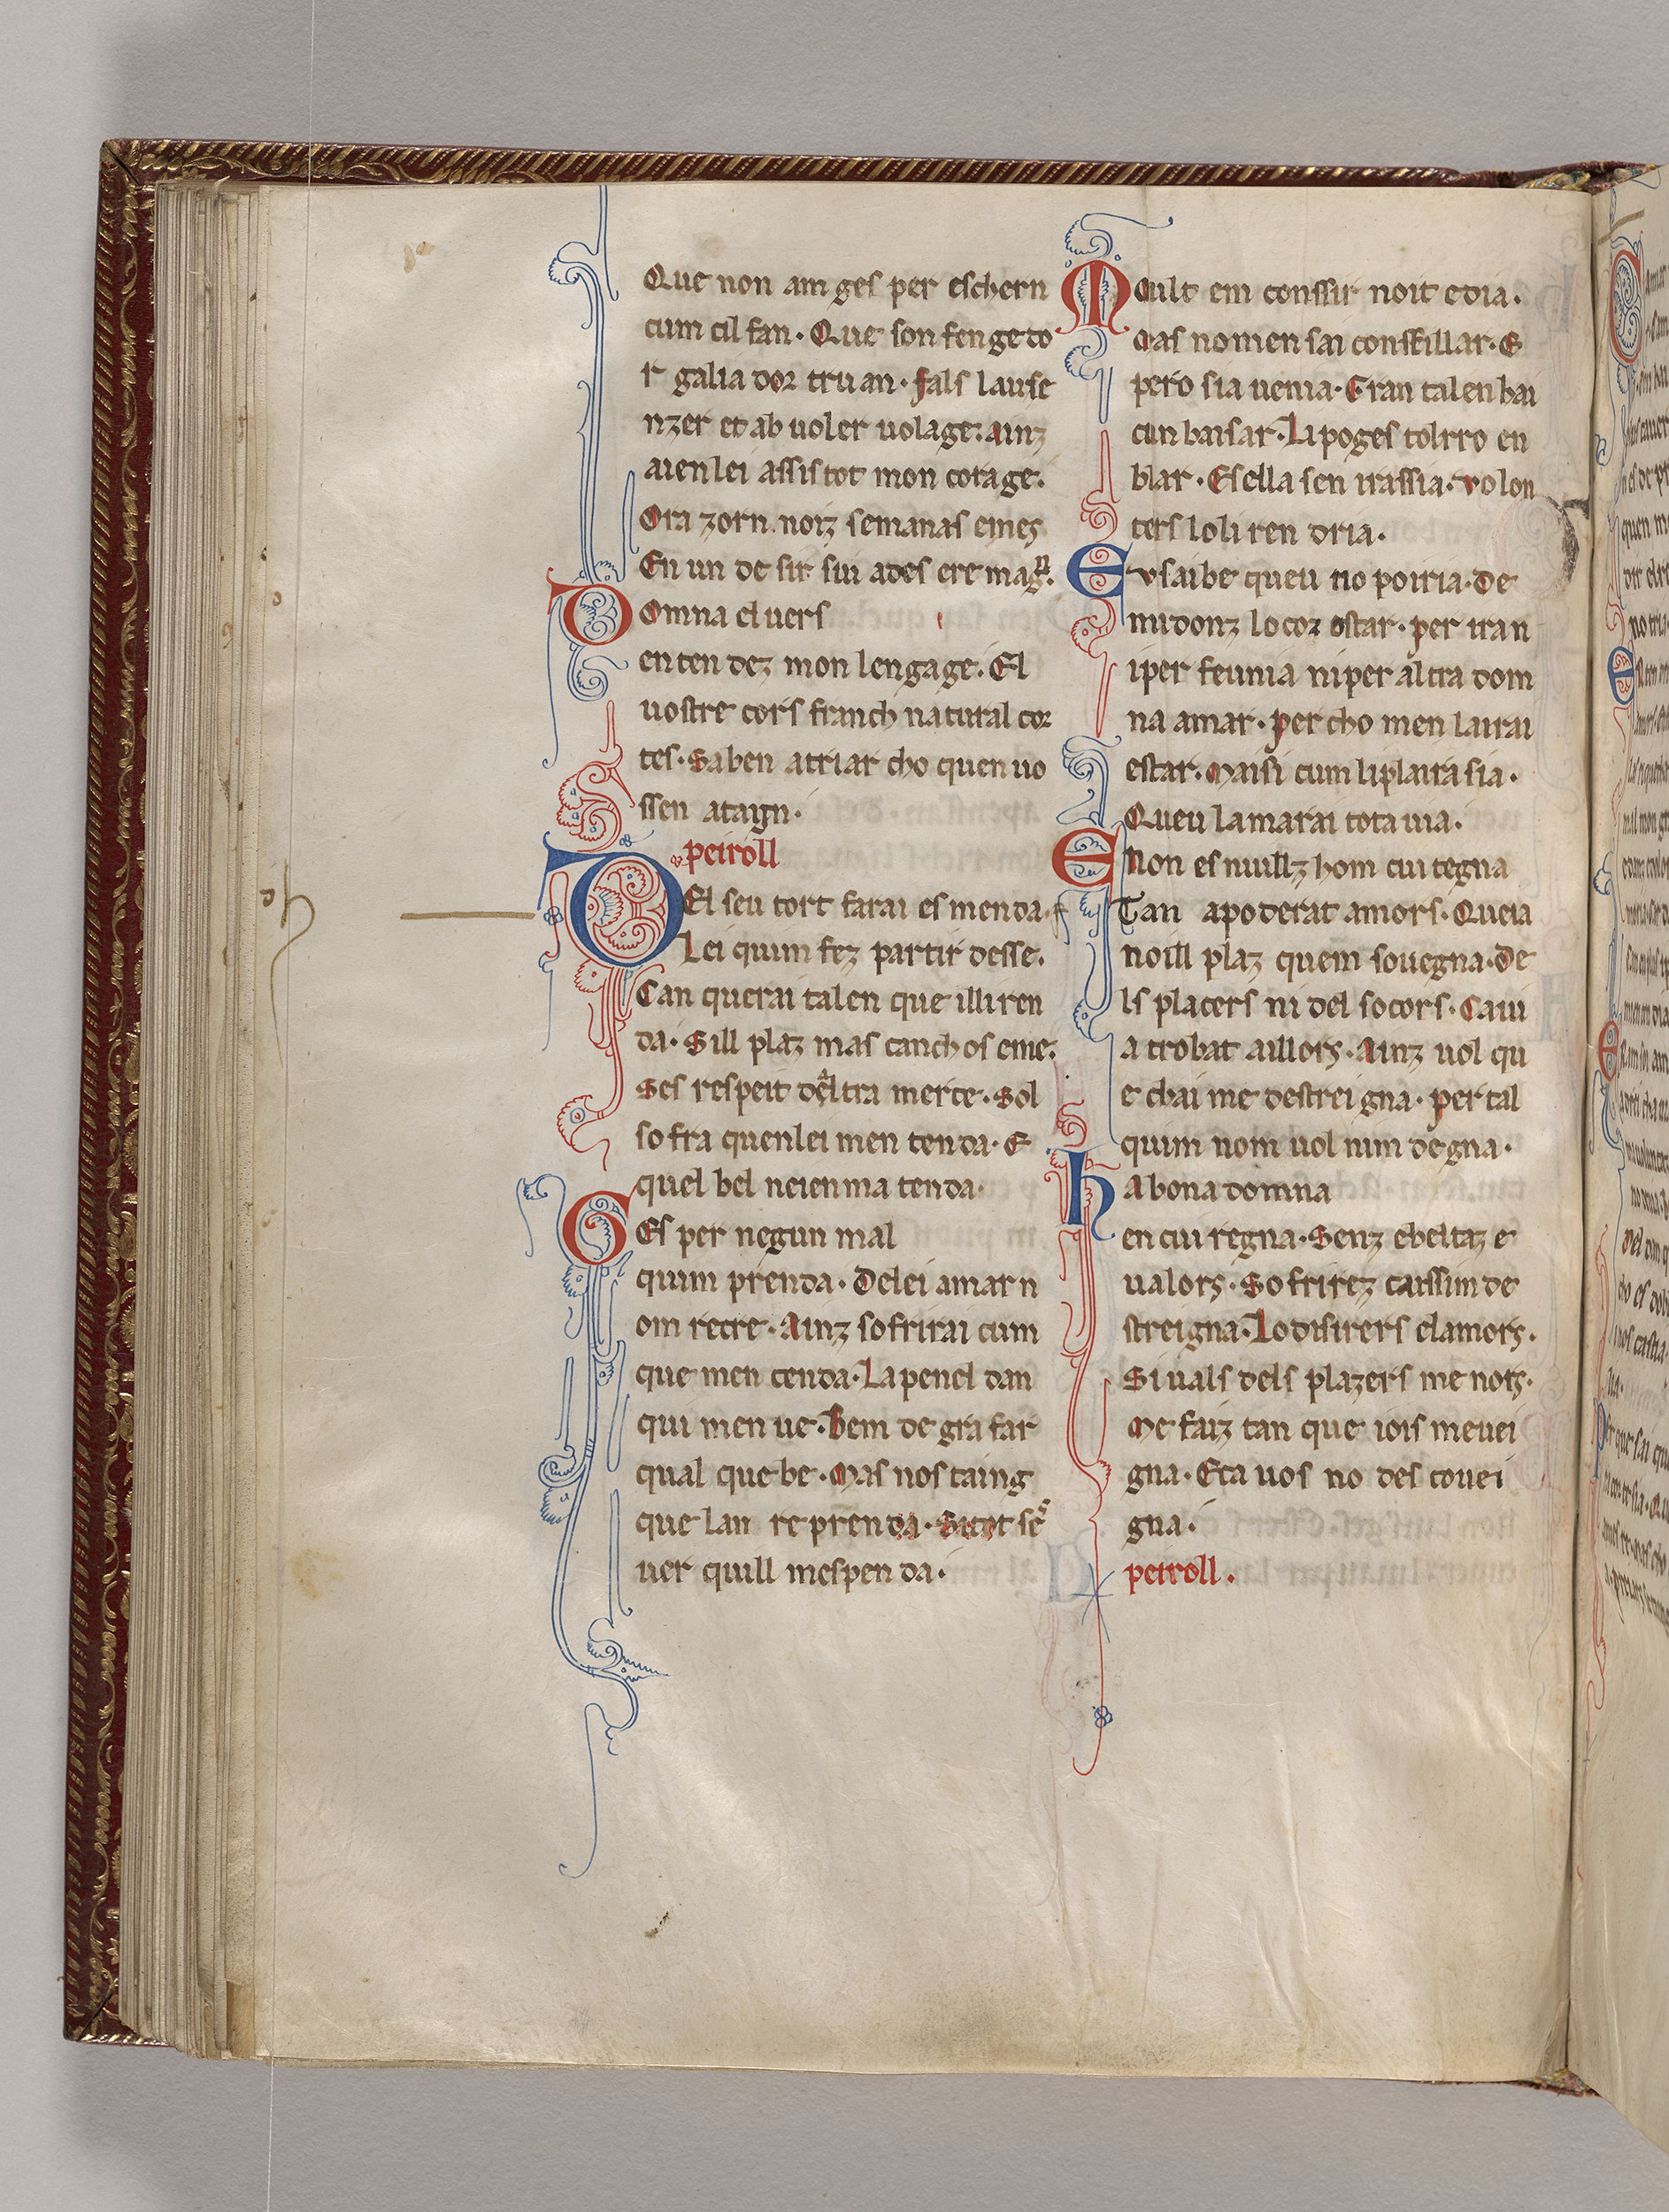 Que non am ges per eschern
cum cil fan. Que son feng e to
r galiador truan. fals lause
nzer et ab uoler uolage. ainz
aien lei assis tot mon corage.
Ora zorn noiz semanas emes
En un desir sui ades ere magr.
Domna el uers
entendez mon lengage. El
uostre cors franch natural cor
tes. Saben atriar cho quen uo
ssen ataign.
peiroll
Del seu tort farai esmenda
Lei quim fez partir desse.
Can querai talen que illi ren
da. Sill plaz mas canchos eme.
Ses respeit del tra merce. Sol
sofra quen lei men tenda. E
quel bel neien ma tenda.
Ges per negun mal
quim prenda. De lei amar n
om recre. Ainz sofrirai cum
que men cenda. La penel dan
qui men ue. Bem degra far
qual que be. Mas nos taing
que lan reprenda. Sitot se
uer quill mespenda.
Mult em conssir noit e dia.
Mas no men sai consseillar. E
pero sia uenia. Gran talen hai
cun baisar. Li poges tolrro en
blar. E sella sen irassia. volon
ters lo li rendria.
Eu sai be queu no poiria. De
midonz lo cor ostar. per iran
i per feunia ni per altra dom
na amar. per cho men lairai
estar. Maisi cum li plaira sia.
Queu lamarai tota uia.
E non es nuillz hom cui tegna
Tan apoderat amors. Queia
noill plaz quem souegna. de
ls placers ni del socors. Caui
a trobat aillors. Ainz uol qu
e chai me destreigna. per tal
quim nom uol nim degna.
ha bona domna
en cui regna. Senz ebeltaz e
ualors. Sofrirez caissim de
streigna. Lo disirers elamors.
Siuals dels plazers menors.
Me faiz tan que iois me uei
gna. E ca uos no desconuei
gna.
peiroll.